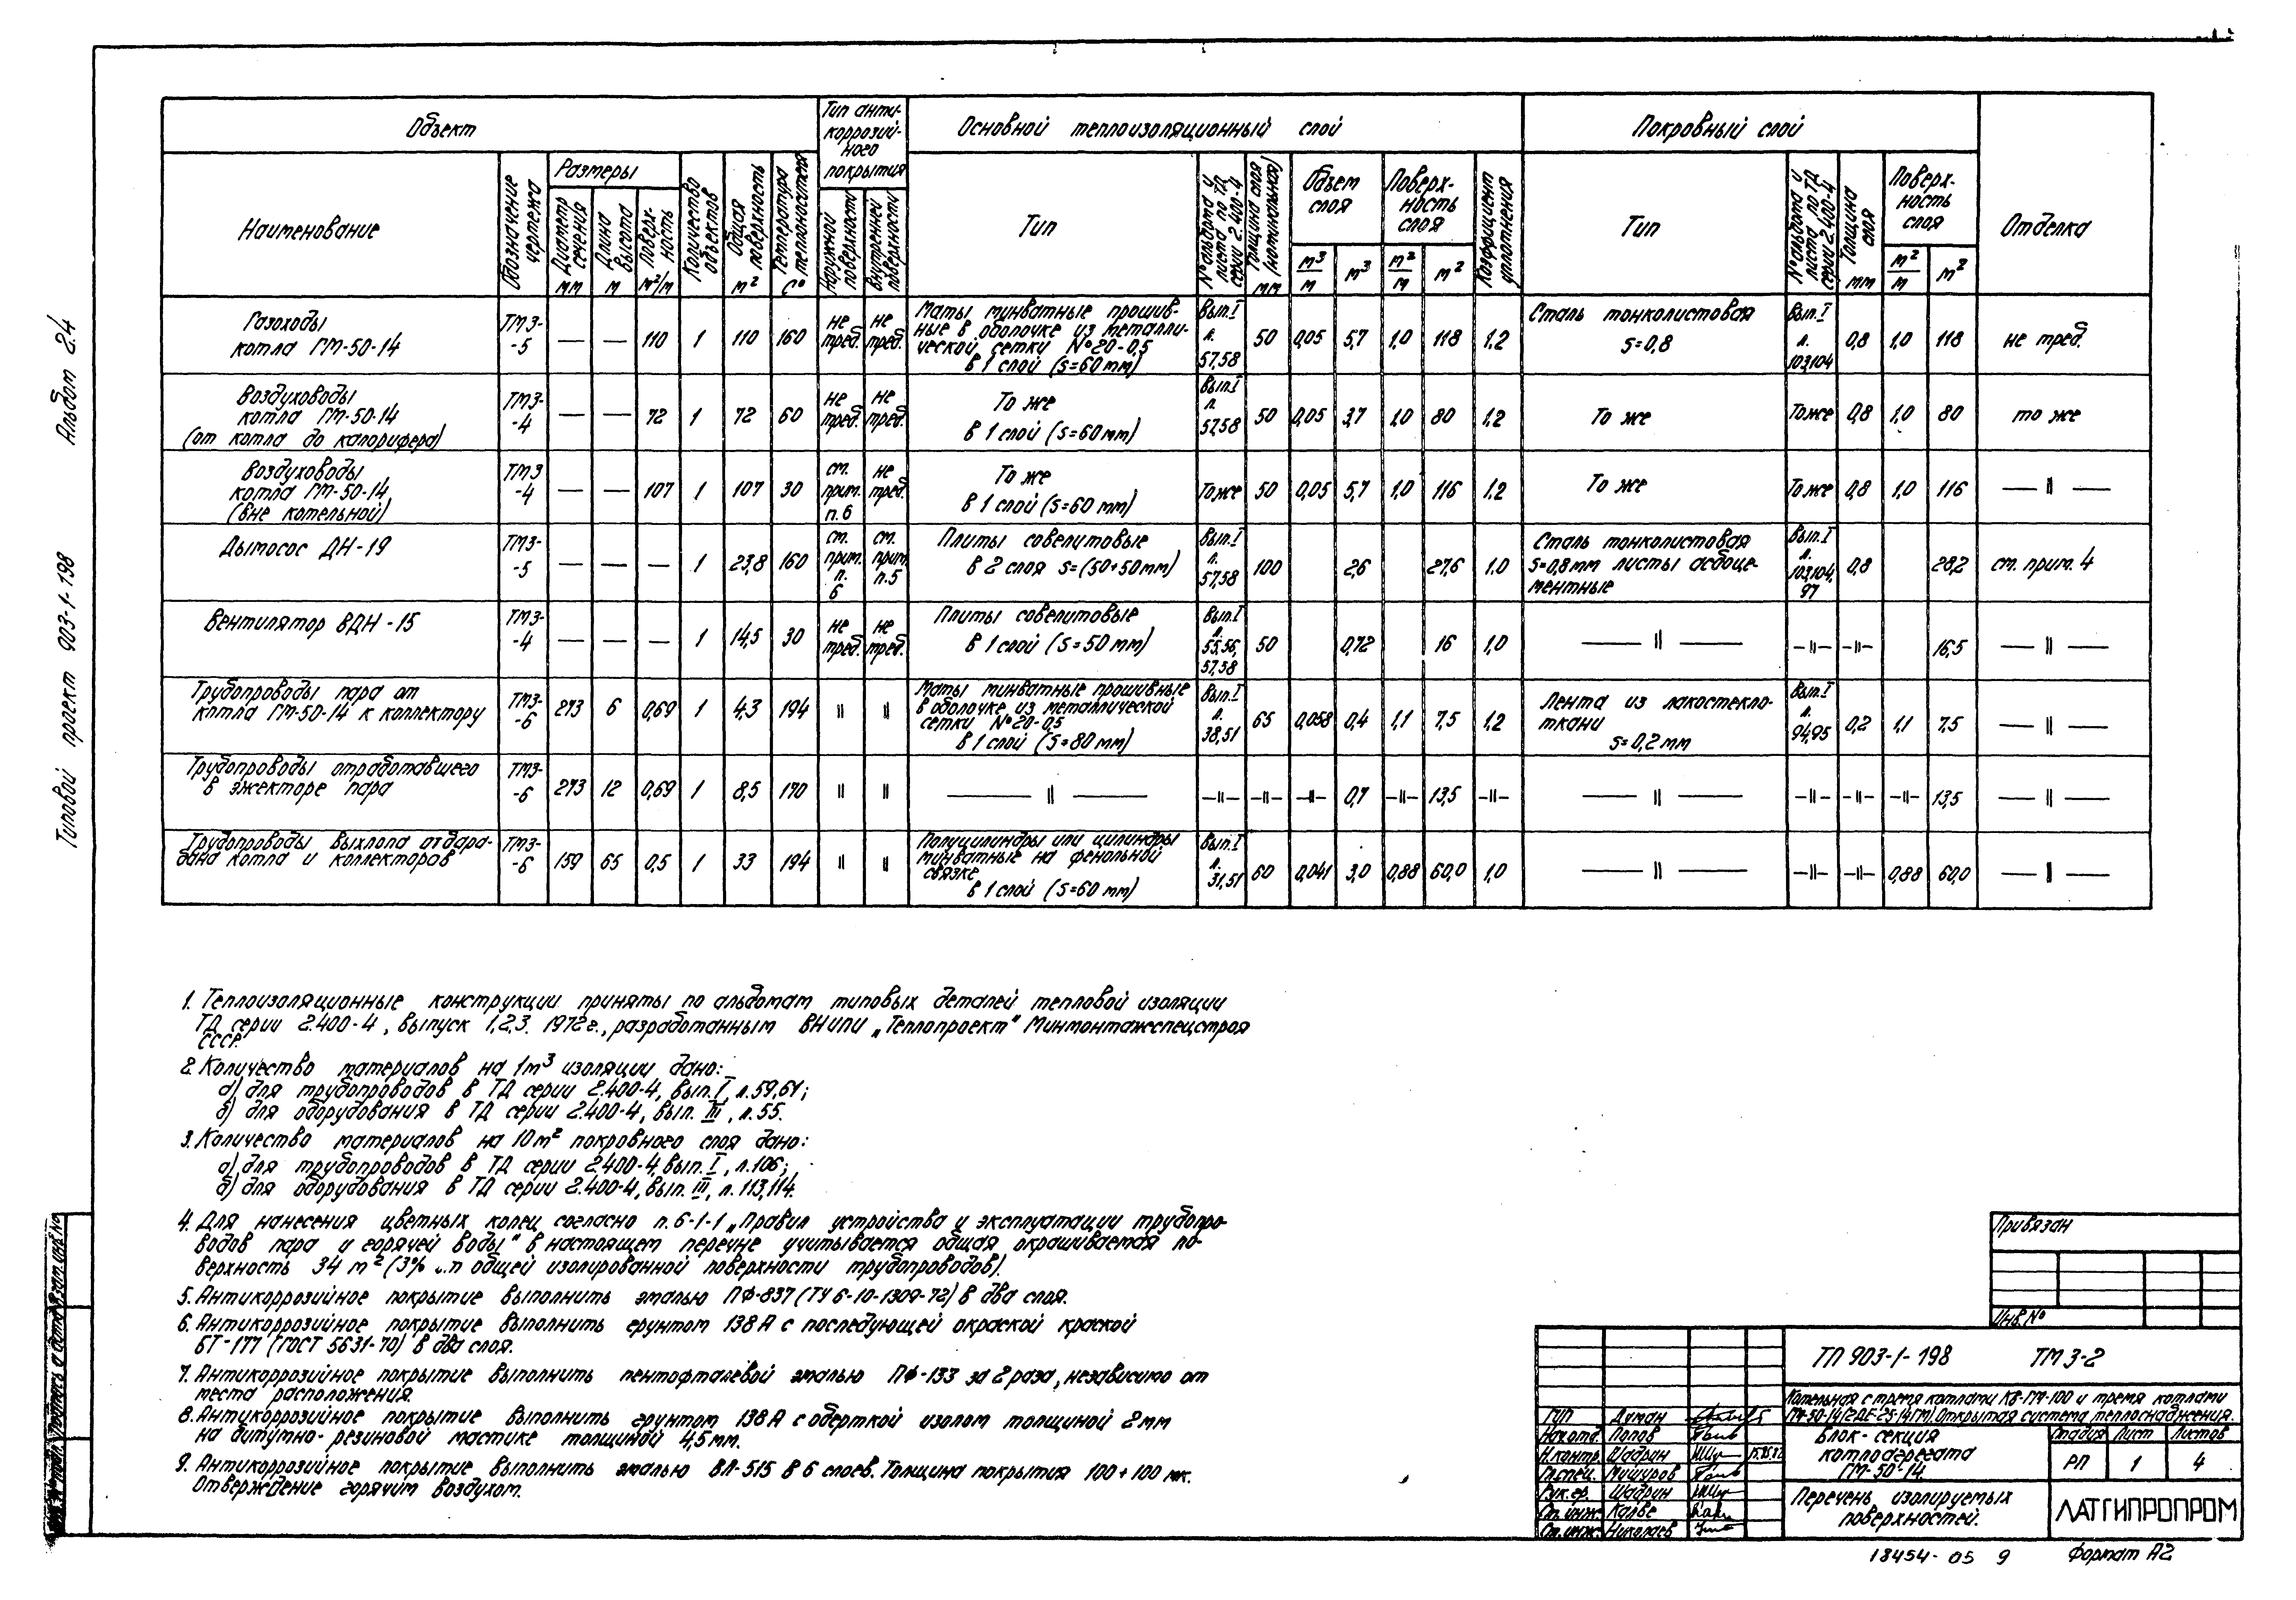 Альбом 2.4
Типовой проект 903-1-198
Объект
Тип анти-
коррозий-
ного
покрытия
Основной теплоизоляционный слой
Покровный слой
Наименование
Обозначение чертежа
Размеры
Диаметр сечения
мм
Длина высота
м
Поверх-
ность
м²/м
Количество объектов
Общая поверхность
м²
Температура теплоносителя
С°
Наружной поверхности
Внутренней поверхности
Тип
№ альбома и листа по ТД серии 2.400-4
Толщина слоя (номинальная)
мм
Объем
слоя
м³/м
м³
Поверх-
ность
слоя
м²/м
м²
Коэффициент уплотнения
Тип
№ альбома и листа по ТД серии 2.400-4
Толщина слоя
мм
Поверх-
ность
слоя
м²/м
м²
Отделка
Газоходы
котла ГМ-50-14
ТМ3-
-5
— — 110 1 110 160
не
треб.
не
треб.
Маты минватные прошив-
ные в оболочке из металли-
ческой сетки №20-0,5
в 1 слой (S=60мм)
Вып.I
л.
57,58
50 0,05 5,7 1,0 118 1,2
Сталь тонколистовая
S=0,8
Вып.I
л.
103,104
0,8 1,0 118 не треб.
Воздуховоды
котла ГМ-50-14
(от котла до калорифера)
ТМ3-
-4
— — 72 1 72 60
не
треб.
не
треб.
То же
в 1 слой (S=60мм)
Вып.I
л.
57,58
50 0,05 3,7 1,0 80 1,2
То же
То же 0,8 1,0 80 то же
Воздуховоды
котла ГМ-50-14
(вне котельной)
ТМ3
-4
— — 107 1 107 30
см.
прим.
п.6
не
треб.
То же
в 1 слой (S=60мм)
То же 50 0,05 5,7 1,0 116 1,2
То же
То же 0,8 1,0 116 — || —
Дымосос ДН-19
ТМ3-
-5
— — — 1 23,8 160
см.
прим.
п.
6
см.
прим
п.5
Плиты совелитовые
в 2 слоя S=(50+50мм)
Вып.I
л.
57,58
100 2,6 27,6 1,0
Сталь тонколистовая
S=0,8мм листы асбоце-
ментные
Вып.I
л.
103,104,
97
0,8 28,2 см. прим. 4
Вентилятор ВДН-15
ТМ3-
-4
— — — 1 14,5 30
не
треб.
не
треб.
Плиты совелитовые
в 1 слой (S=50мм)
Вып.I
л.
55,56,
57,58
50 0,72 16 1,0
— || — —||— —||— 16,5 — || —
Трубопроводы пара от
котла ГМ-50-14 к коллектору
ТМ3-
-6
273 6 0,69 1 4,3 194 || ||
Маты минватные прошивные
в оболочке из металлической
сетки №20-0,5
в 1 слой (S=80мм)
Вып.I
л.
38,51
65 0,058 0,4 1,1 7,5 1,2
Лента из лакостекло-
ткани
S=0,2мм
Вып.I
л.
94,95
0,2 1,1 7,5 — || —
Трубопроводы отработавшего
в эжекторе пара
ТМ3-
-6
273 12 0,69 1 8,5 170 || ||
— || — —||— —||— —||— 0,7 —||— 13,5 —||—
— || — —||— —||— —||— 13,5 — || —
Трубопроводы выхлопа от бара-
бана котла и коллекторов
ТМ3-
-6
159 65 0,5 1 33 194 || ||
Полуцилиндры или цилиндры
минватные на фенольной
связке
в 1 слой (S=60мм)
Вып.I
л.
31,51
60 0,041 3,0 0,88 60,0 1,0
— || — —||— —||— 0,88 60,0 — || —
1. Теплоизоляционные конструкции приняты по альбомам типовых деталей тепловой изоляции
ТД серии 2.400-4, выпуск 1,2,3. 1972г., разработанным ВНИПИ „Теплопроект" Минмонтажспецстроя
СССР.
2. Количество материалов на 1м³ изоляции дано:
а) для трубопроводов в ТД серии 2.400-4, вып. I, л.59,61;
б) для оборудования в ТД серии 2.400-4, вып. III, л.55.
3. Количество материалов на 10м² покровного слоя дано:
а) для трубопроводов в ТД серии 2.400-4, вып. I, л.106;
б) для оборудования в ТД серии 2.400-4, вып. III, л.113,114.
4. Для нанесения цветных колец согласно п.6-1-1 „Правил устройства и эксплуатации трубопро-
водов пара и горячей воды" в настоящем перечне учитывается общая окрашиваемая по-
верхность 34 м² (3% от общей изолированной поверхности трубопроводов).
5. Антикоррозийное покрытие выполнить эмалью ПФ-837 (ТУ6-10-1309-72) в два слоя.
6. Антикоррозийное покрытие выполнить грунтом 138А с последующей окраской краской
БТ-177 (ГОСТ 5631-70) в два слоя.
7. Антикоррозийное покрытие выполнить пентофталевой эмалью ПФ-133 за 2 раза, независимо от
места расположения.
8. Антикоррозийное покрытие выполнить грунтом 138А с оберткой изолом толщиной 2мм
на битумно-резиновой мастике толщиной 4,5мм.
9. Антикоррозийное покрытие выполнить эмалью ВЛ-515 в 6 слоев. Толщина покрытия 100+100 мк.
Отверждение горячим воздухом.
Привязан
Инв.№
ТП 903-1-198 ТМ3-2
Котельная с тремя котлами КВ-ГМ-100 и тремя котлами
ГМ-50-14(2ДЕ-25-14ГМ). Открытая система теплоснабжения.
ГИП Думан
Нач.отд. Попов
Н.контр. Шадрин
Гл.спец. Мишуров
Рук.гр. Шадрин
Ст.инж. Калве
Ст.инж. Николаев
Блок-секция
котлоагрегата
ГМ-50-14.
Стадия Лист Листов
РП 1 4
Перечень изолируемых
поверхностей.
ЛАТГИПРОПРОМ
18454-05 9 Формат А2